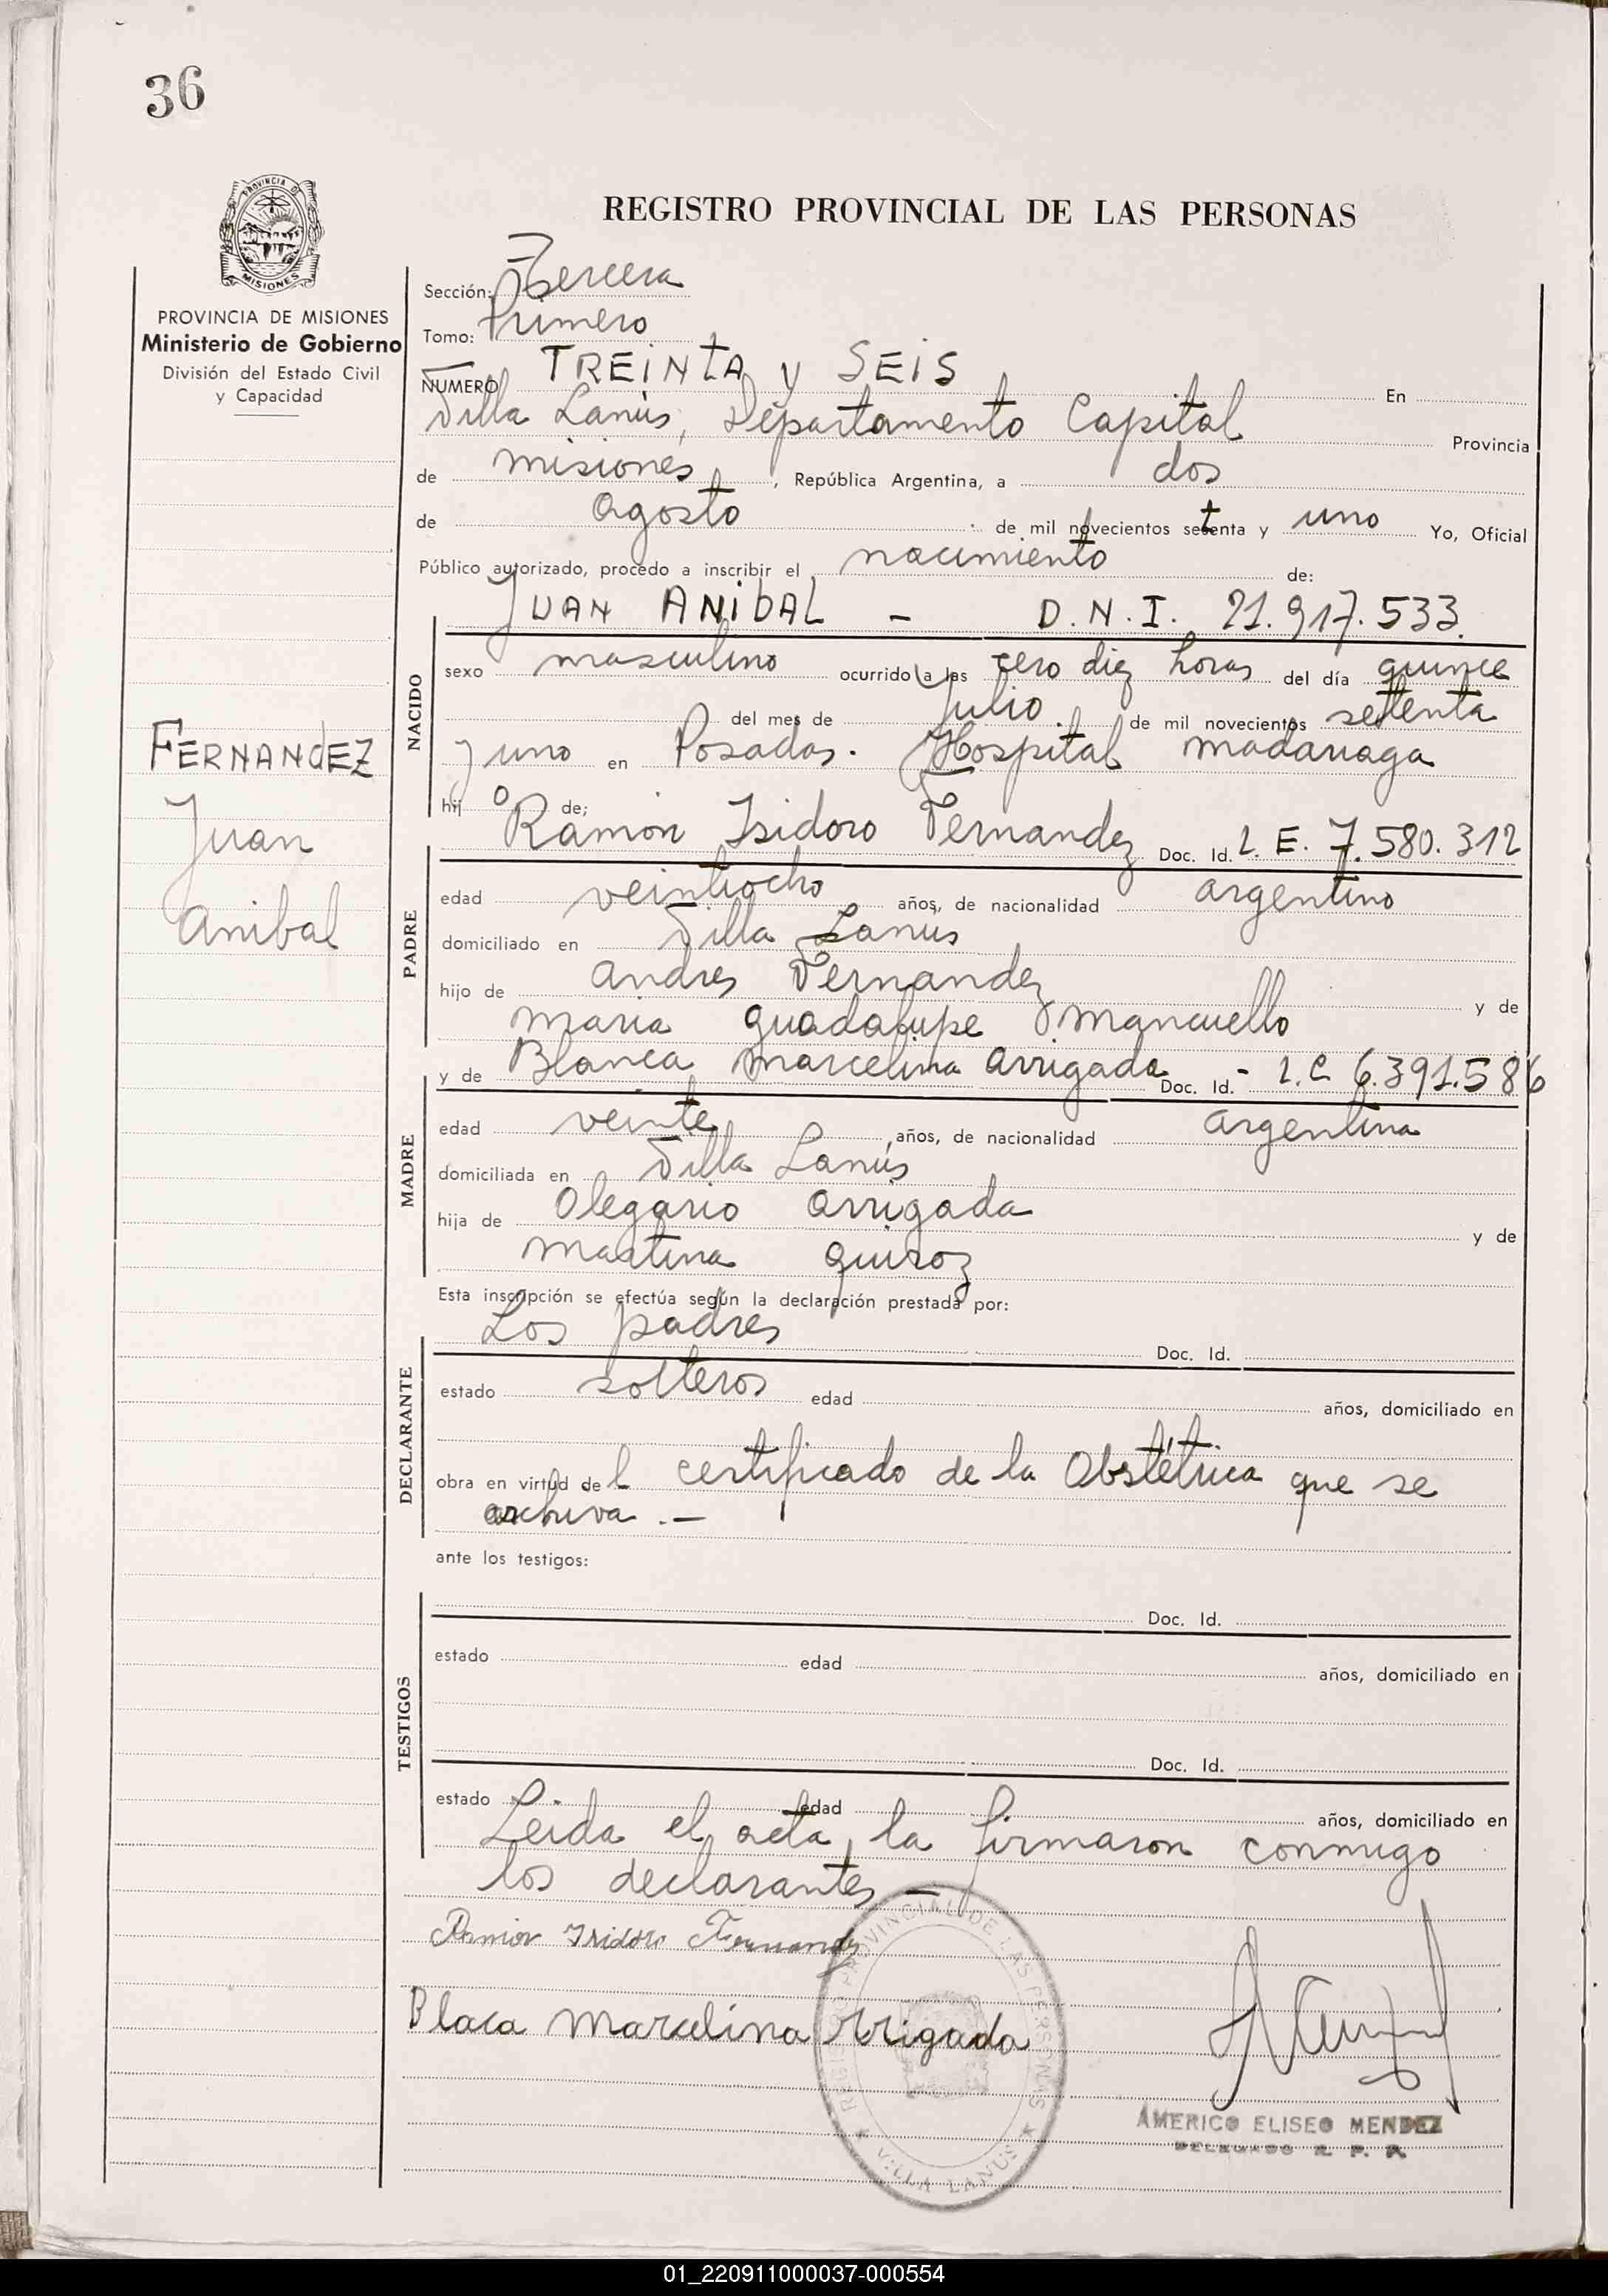 36
PROVINCIA DE
MISIONES
REGISTRO PROVINCIAL DE LAS PERSONAS
PROVINCIA DE MISIONES
Ministerio de Gobierno
División del Estado Civil
y Capacidad
Sección: Tercera
Tomo: Primero
NUMERO TREINTA y SEIS En
Villa Lanús, Departamento Capital Provincia
de misiones, República Argentina, a dos
de Agosto de mil novecientos setenta y uno Yo, Oficial
Público autorizado, procedo a inscribir el nacimiento de:
JUAN ANIBAL - D.N.I. 21.917.533.
NACIDO
sexo masculino ocurrido a las cero diez horas del día quince
del mes de Julio. de mil novecientos setenta
y uno en Posadas. Hospital madariaga
FERNANDEZ
Juan
Anibal
hijo de;
Ramón Isidoro Fernandez Doc. Id. L.E. 7.580.312
PADRE
edad veintiocho años, de nacionalidad argentino
domiciliado en Villa Lanús
hijo de andres Fernandez y de
maria guadalupe mancuello
y de Blanca marcelina arrigada Doc. Id. - L.C. 6.391.586
MADRE
edad veinte años, de nacionalidad argentina
domiciliada en Villa Lanús
hija de Olegario arrigada y de
martina quiroz
Esta inscripción se efectúa según la declaración prestada por:
Los padres Doc. Id.
DECLARANTE
estado solteros edad años, domiciliado en
obra en virtud del certificado de la Obstétrica que se
archiva.-
ante los testigos:
Doc. Id.
TESTIGOS
estado edad años, domiciliado en
Doc. Id.
estado edad años, domiciliado en
Leida el acta, la firmaron conmigo
los declarantes -
Ramon Isidoro Fernandez
Blaca Marcelina Arigada
REGISTRO PROVINCIAL DE LAS PERSONAS
VILLA LANUS
AMERICO ELISEO MENDEZ
DELEGADO R. P. P.
01_220911000037-000554